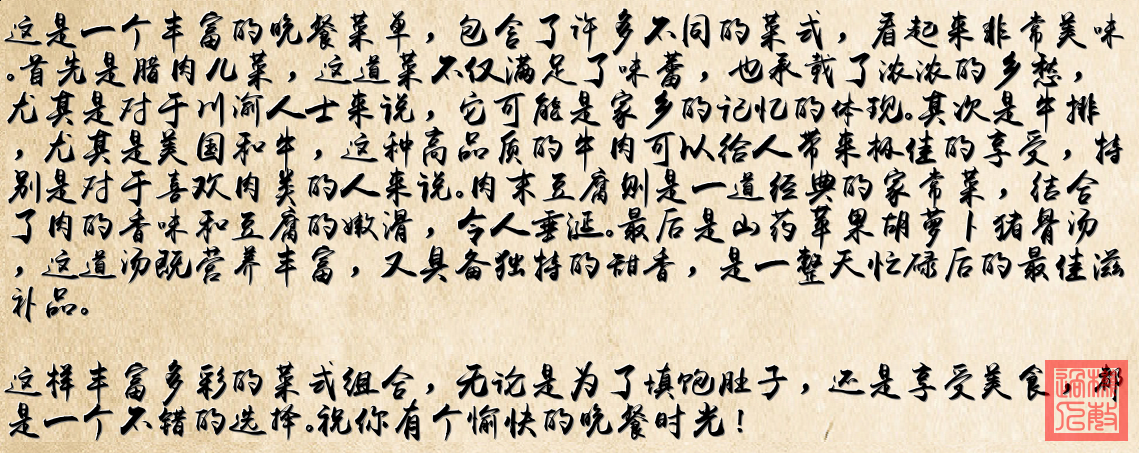 这是一个丰富的晚餐菜单，包含了许多不同的菜式，看起来非常美味
。首先是腊肉儿菜，这道菜不仅满足了味蕾，也承载了浓浓的乡愁，
尤其是对于川渝人士来说，它可能是家乡的记忆的体现。其次是牛排
，尤其是美国和牛，这种高品质的牛肉可以给人带来极佳的享受，特
别是对于喜欢肉类的人来说。肉末豆腐则是一道经典的家常菜，结合
了肉的香味和豆腐的嫩滑，令人垂涎。最后是山药苹果胡萝卜猪骨汤
，这道汤既营养丰富，又具备独特的甜香，是一整天忙碌后的最佳滋
补品。
这样丰富多彩的菜式组合，无论是为了填饱肚子，还是享受美食，都
是一个不错的选择。祝你有个愉快的晚餐时光！